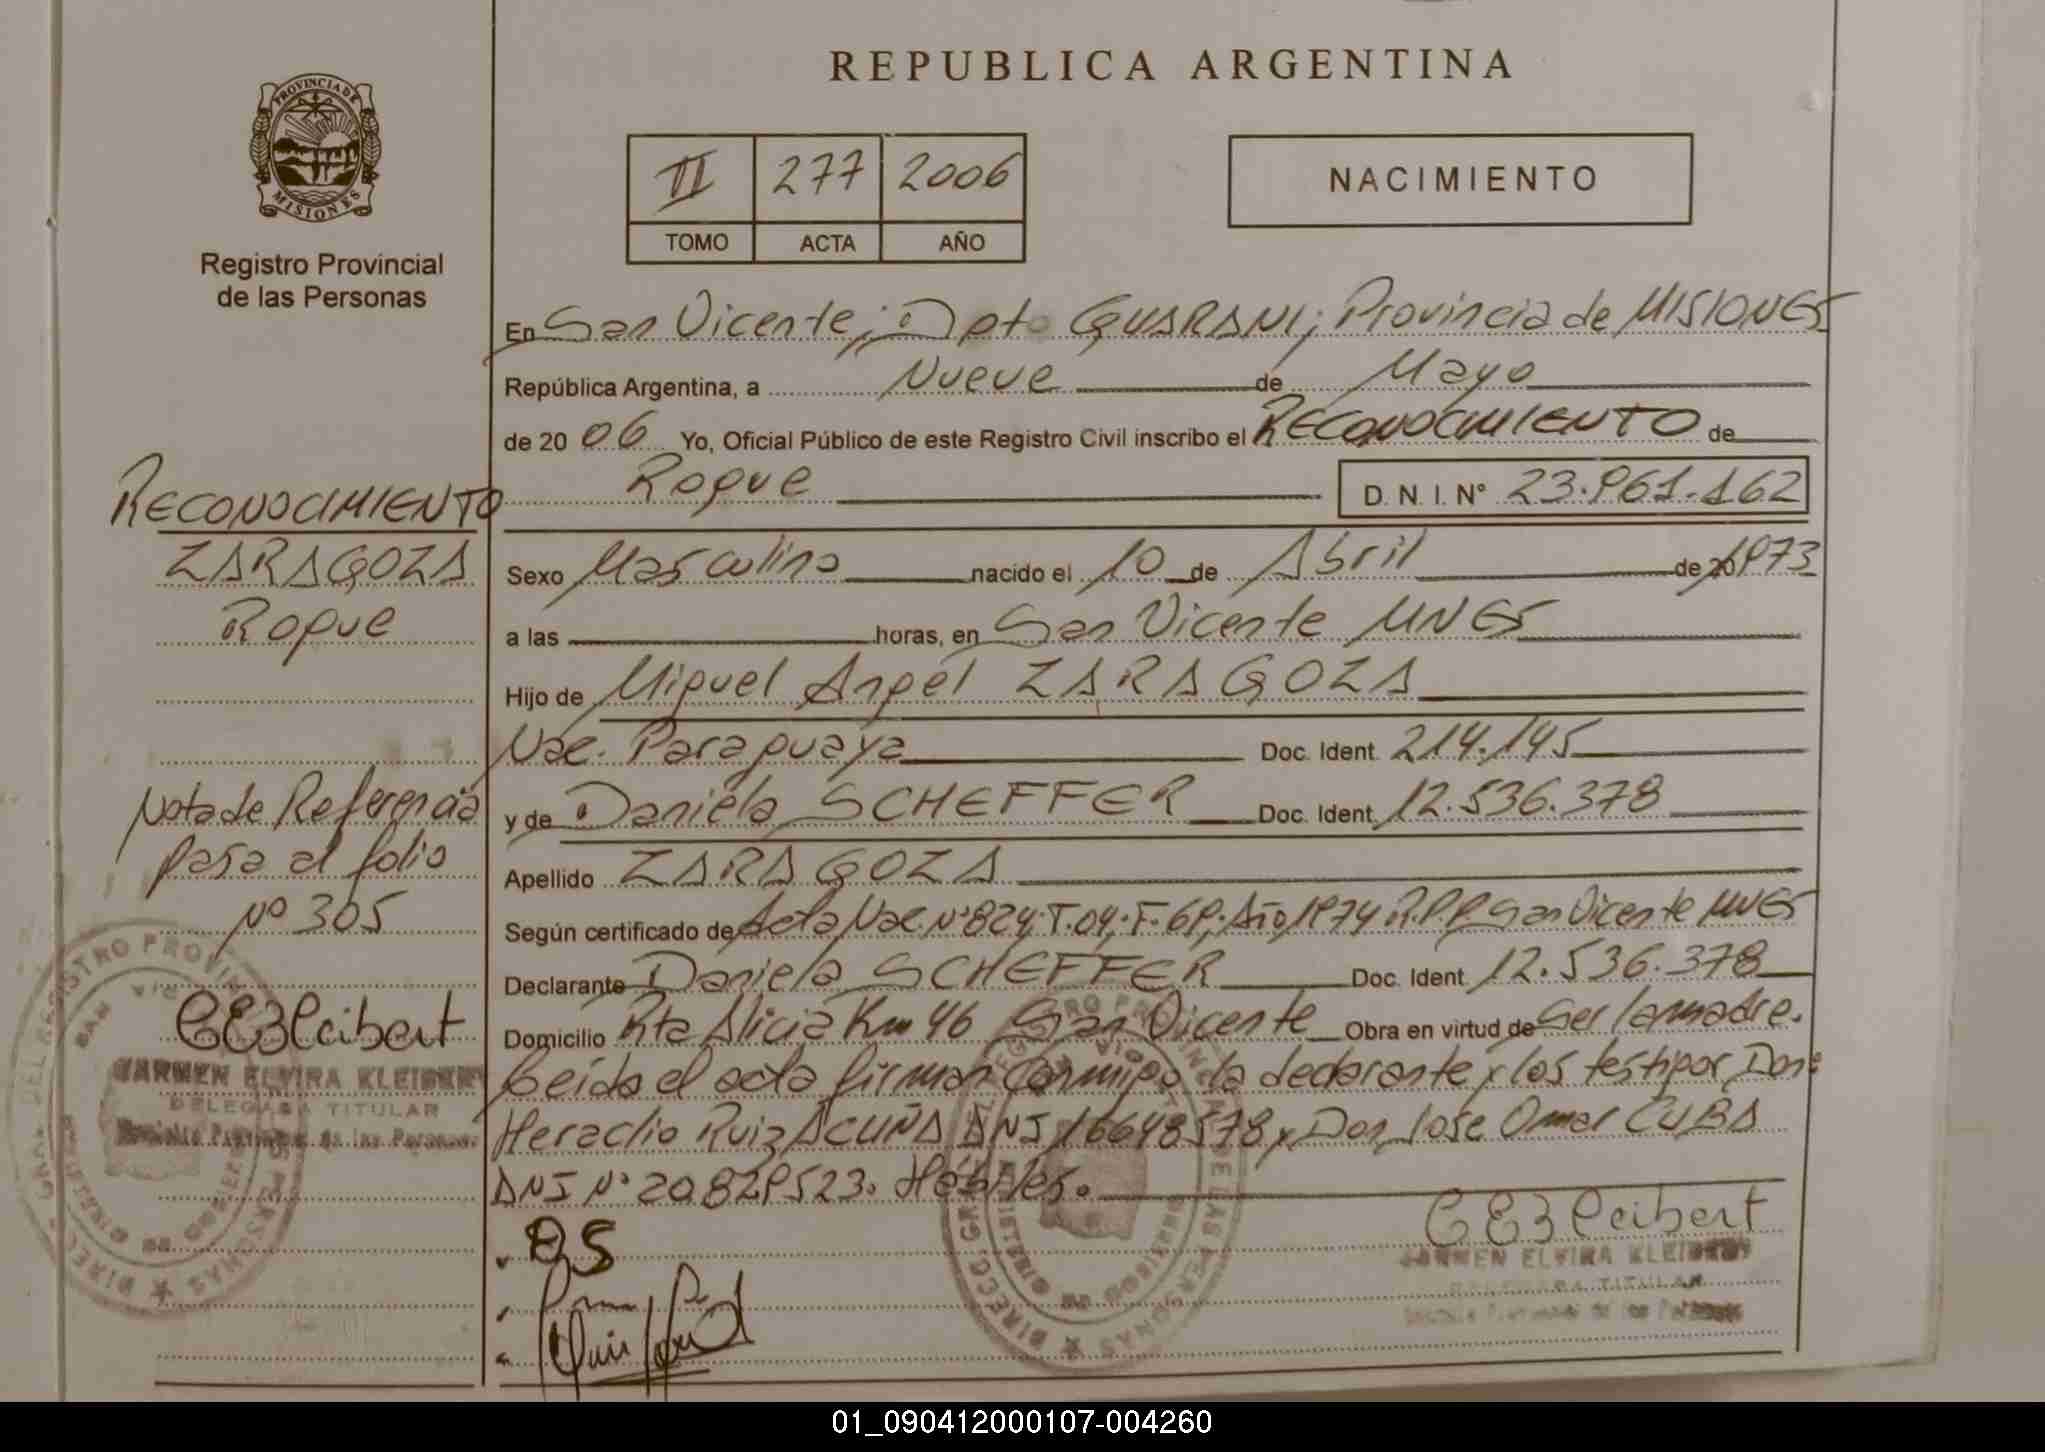 PROVINCIA DE
MISIONES
Registro Provincial
de las Personas
REPUBLICA ARGENTINA
II 277 2006
TOMO ACTA AÑO
NACIMIENTO
En San Vicente; Dpto GUARANI; Provincia de MISIONES
República Argentina, a Nueve de Mayo
de 20 06 Yo, Oficial Público de este Registro Civil inscribo el RECONOCIMIENTO de
Roque D. N. I. Nº 23.961.162
Sexo Masculino nacido el 10 de Abril de 1973
a las horas, en San Vicente MNES
Hijo de Miguel Angel ZARAGOZA
Nac. Paraguaya Doc. Ident. 214.145
y de Daniela SCHEFFER Doc. Ident. 12.536.378
Apellido ZARAGOZA
Según certificado de Acta Nac. Nº 824; T. 04; F. 69; Año 1974 R.P.P. San Vicente MNES
Declarante Daniela SCHEFFER Doc. Ident. 12.536.378
Domicilio Rta Alicia Km 46 San Vicente Obra en virtud de Ser la madre.
Leída el acta firman conmigo la declarante y los testigos, Don:
Heraclio Ruiz ACUÑA DNI 16648578 y Don Jose Omar CUBA
DNI Nº 20.829523. Hábiles.
DS
CEKleibert
CARMEN ELVIRA KLEIBERT
DELEGADA TITULAR
Registro Provincial de las Personas
RECONOCIMIENTO
ZARAGOZA
Roque
Nota de Referencia
pasa al folio
Nº 305
CEKleibert
CARMEN ELVIRA KLEIBERT
DELEGADA TITULAR
Registro Provincial de las Personas
01_090412000107-004260